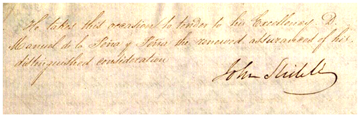 He takes this occasion to tender to his Excellency D.
Manuel de la Peña y Peña the renewed assurances of his
distinguished consideration
John Slidell